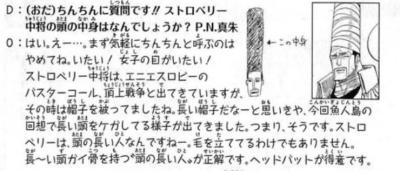 D：(おだ)ちんちんに質問です!! ストロベリー
中将の頭の中身はなんでしょうか？P.N.真朱
O：はい。えー…。まず気軽にちんちんと呼ぶのは
やめてね。いたい！女子の目がいたい！
ストロベリー中将は、エニエスロビーの
バスターコール、頂上戦争と出てきていますが、
その時は帽子を被ってましたね。長い帽子だなーと思いきや、今回魚人島の
回想で長い頭をケガしてる様子が出てきました。つまり、そうです。ストロ
ベリーは、頭の長い人なんですねー。毛を立ててるわけでもありません。
長〜い頭ガイ骨を持つ"頭の長い人"が正解です。ヘッドパットが得意です。
←この中身